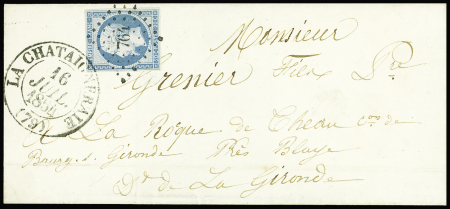 764
LA CHATAIGNERAIE
16
JUIL.
(79)
Monsieur
Grenier Fils
A La Roque de Cheau Cne de
Bourg s. Gironde Près Blaye
Dt de La Gironde